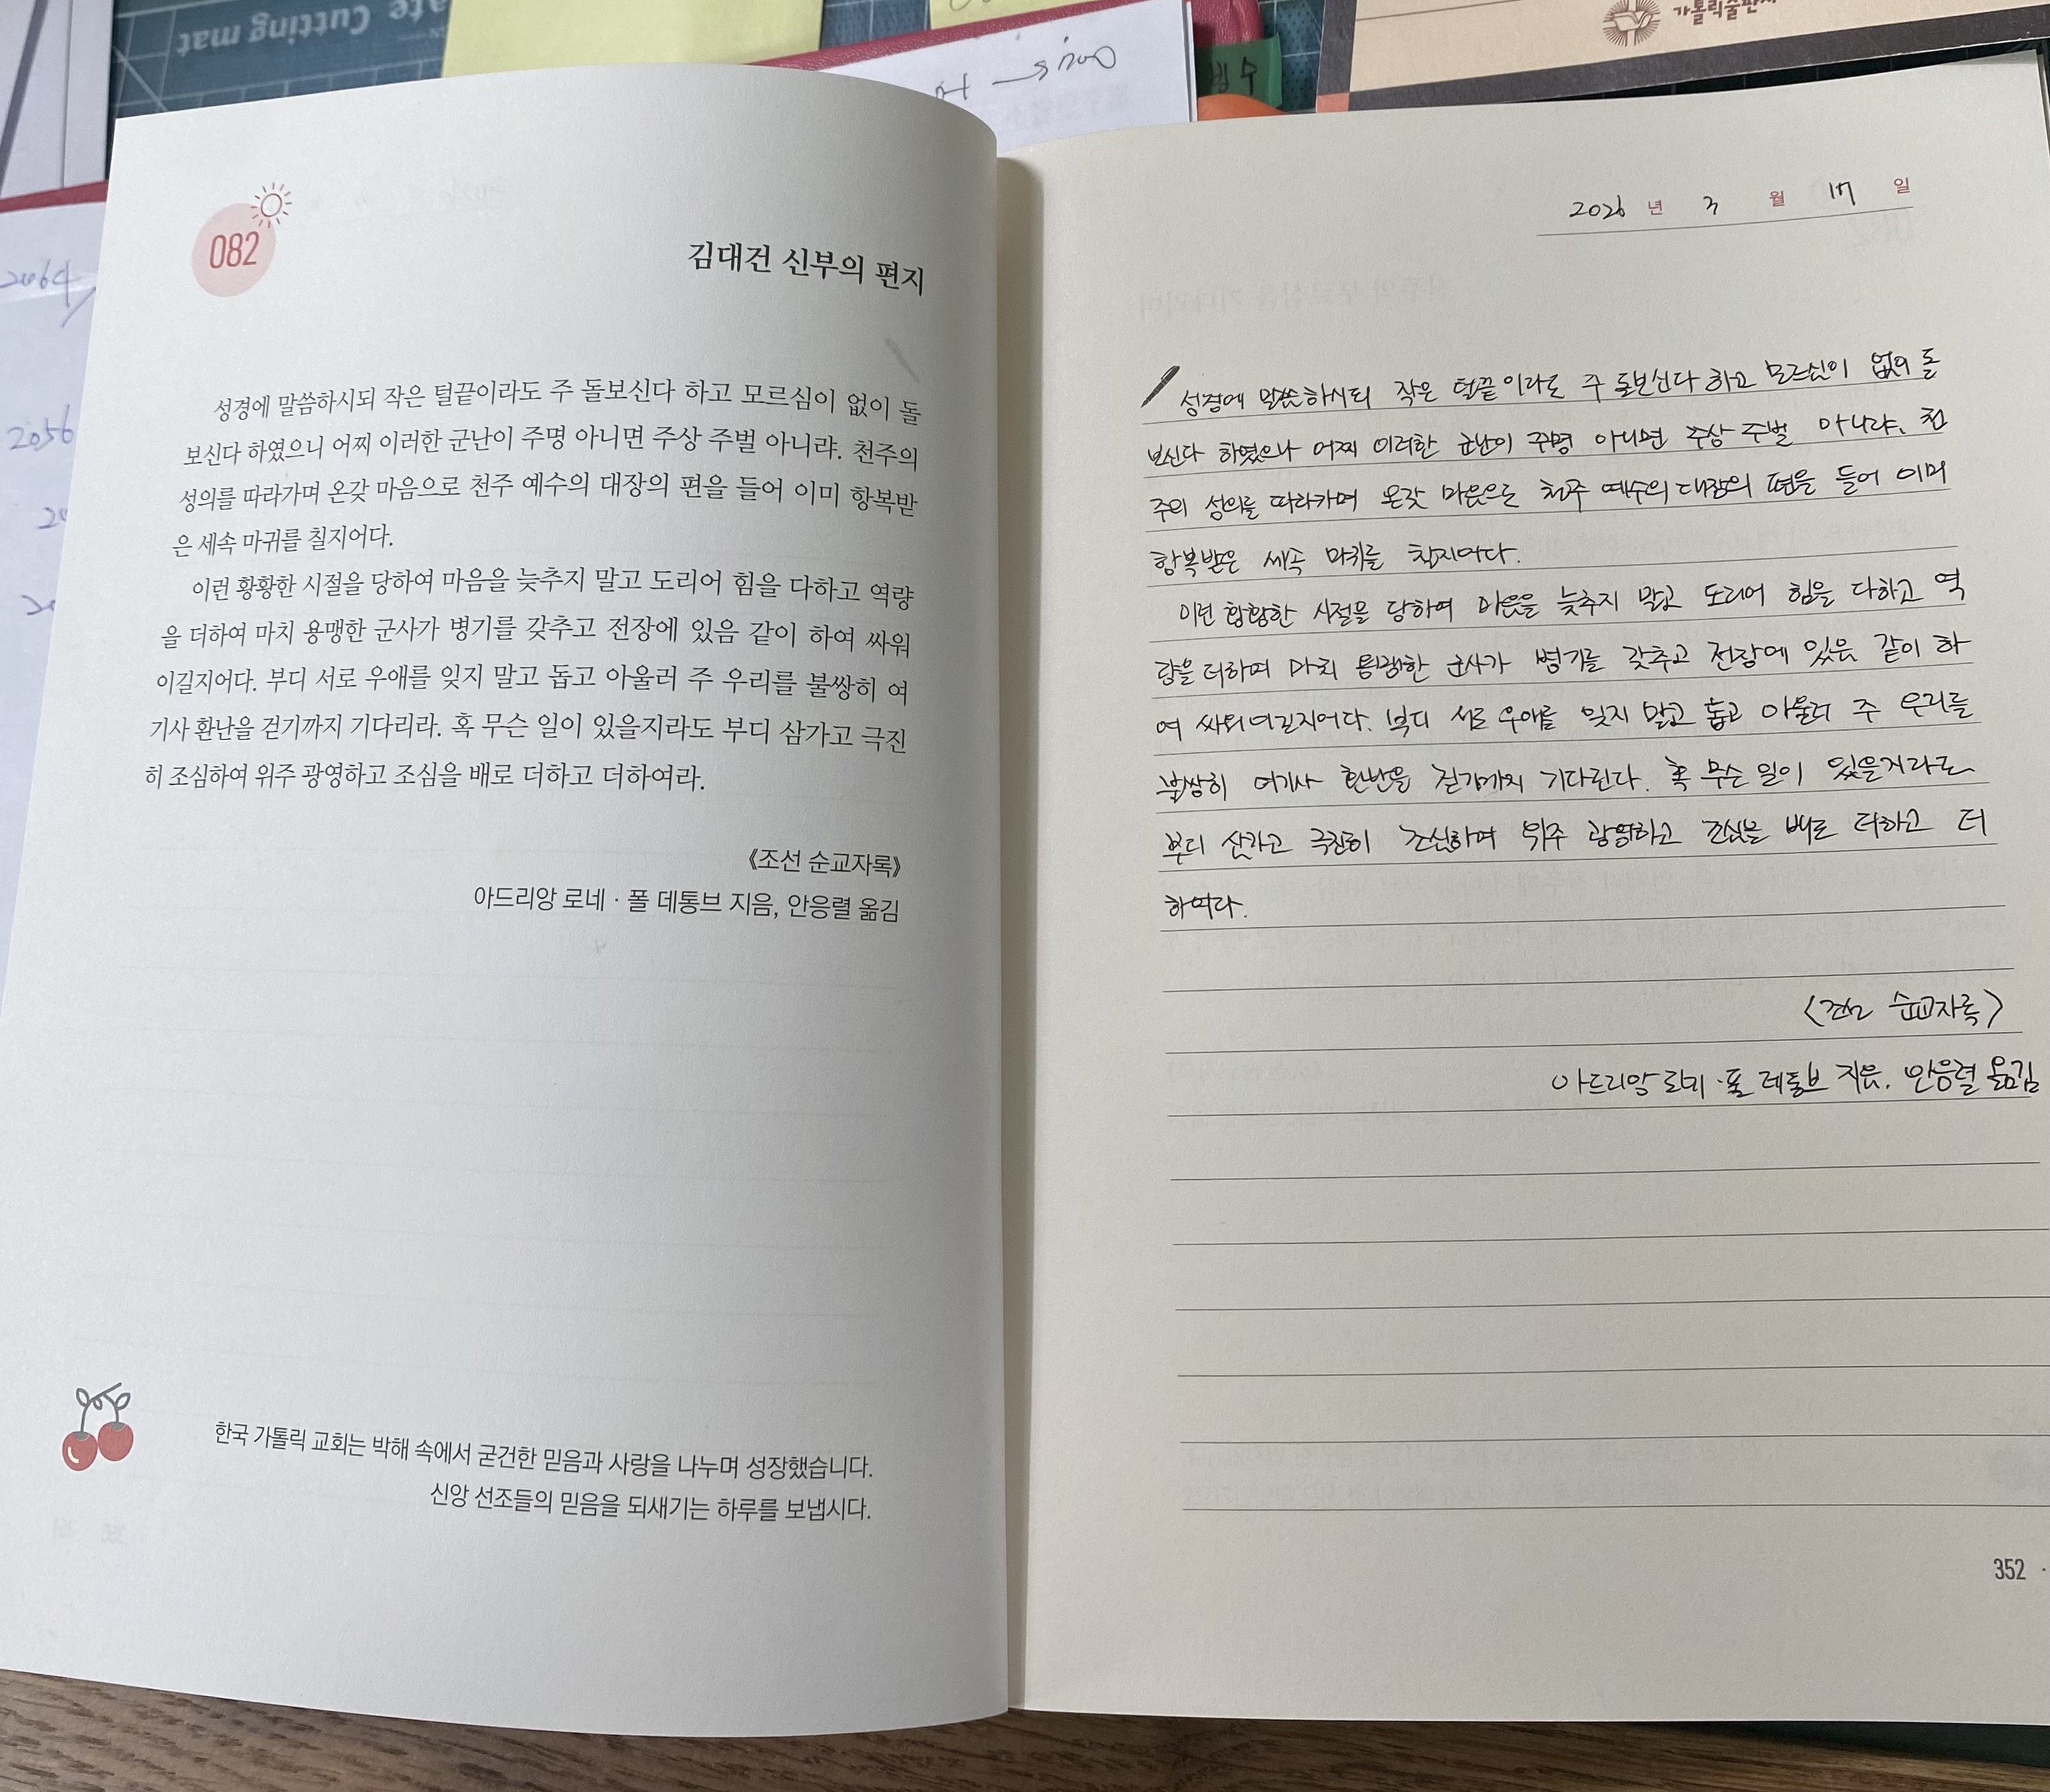 Cutting mat
가톨릭출판사
082
김대건 신부의 편지
성경에 말씀하시되 작은 털끝이라도 주 돌보신다 하고 모르심이 없이 돌
보신다 하였으니 어찌 이러한 군난이 주명 아니면 주상 주벌 아니랴. 천주의
성의를 따라가며 온갖 마음으로 천주 예수의 대장의 편을 들어 이미 항복받
은 세속 마귀를 칠지어다.
이런 황황한 시절을 당하여 마음을 늦추지 말고 도리어 힘을 다하고 역량
을 더하여 마치 용맹한 군사가 병기를 갖추고 전장에 있음 같이 하여 싸워
이길지어다. 부디 서로 우애를 잊지 말고 돕고 아울러 주 우리를 불쌍히 여
기사 환난을 걷기까지 기다리라. 혹 무슨 일이 있을지라도 부디 삼가고 극진
히 조심하여 위주 광영하고 조심을 배로 더하고 더하여라.
《조선 순교자록》
아드리앙 로네 · 폴 데통브 지음, 안응렬 옮김
한국 가톨릭 교회는 박해 속에서 굳건한 믿음과 사랑을 나누며 성장했습니다.
신앙 선조들의 믿음을 되새기는 하루를 보냅시다.
2026 년 3 월 17 일
성경에 말씀하시되 작은 털끝이라도 주 돌보신다 하고 모르심이 없이 돌
보신다 하였으나 어찌 이러한 군난이 주명 아니면 주상 주벌 아니랴. 천
주의 성의를 따라가며 온갖 마음으로 천주 예수의 대장의 편을 들어 이미
항복받은 세속 마귀를 칠지어다.
이런 황황한 시절을 당하여 마음을 늦추지 말고 도리어 힘을 다하고 역
량을 더하여 마치 용맹한 군사가 병기를 갖추고 전장에 있음 같이 하
여 싸워 이길지어다. 부디 서로 우애를 잊지 말고 돕고 아울러 주 우리를
불쌍히 여기사 환난을 걷기까지 기다린다. 혹 무슨 일이 있을지라도
부디 삼가고 극진히 조심하여 위주 광영하고 조심을 배로 더하고 더
하여라.
〈조선 순교자록〉
아드리앙 로네 · 폴 데통브 지음, 안응렬 옮김
352
2064
2056